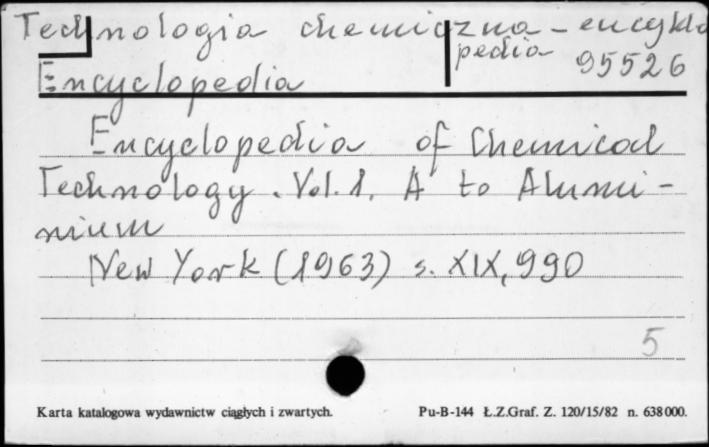 Technologia chemiczna - encyklo
pedia 95526
Encyclopedia
Encyclopedia of Chemical
Technology. Vol. 1. A to Alumi-
nium
New York (1963) s. XIX, 990
5
Karta katalogowa wydawnictw ciągłych i zwartych. Pu-B-144 Ł.Z.Graf. Z. 120/15/82 n. 638000.